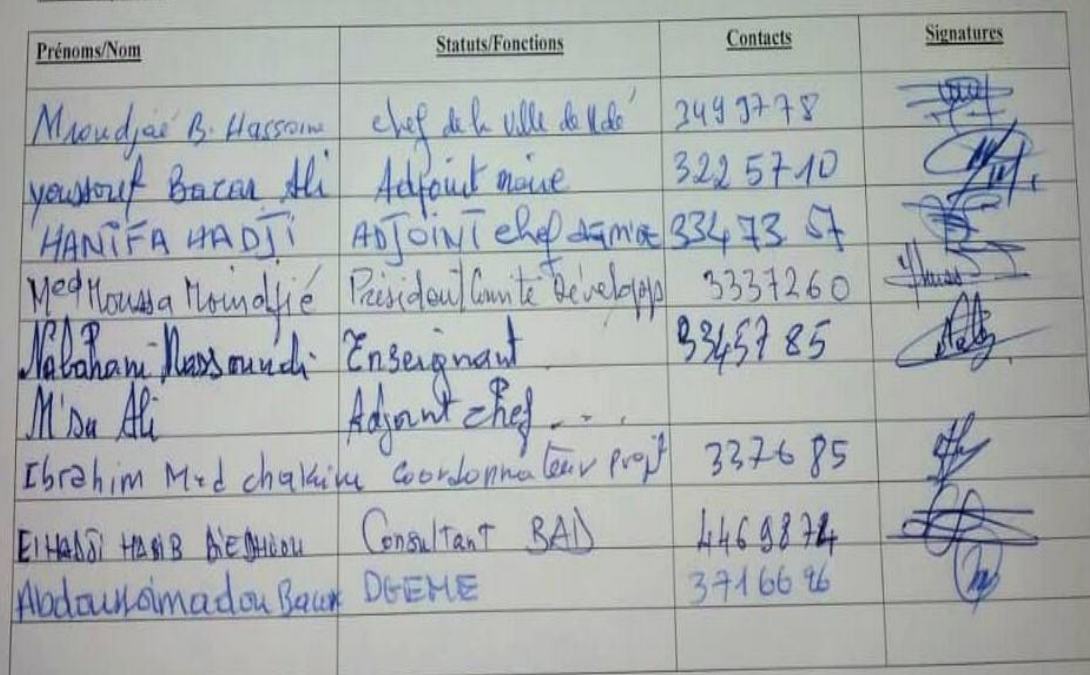 Prénoms/Nom Statuts/Fonctions Contacts Signatures
Mroudjaé B. Hassane chef de la ville de 349 97 78
youssouf Bacar Ali Adjoint maire 322 57 10
HANIFA HADJI ADJOINT chef 334 73 57
Med Moussa Moindjié Président Comité Développ 3337260
Nabahani Massoundi Enseignant 3345785
M'Du Ali Adjoint chef - - .
Ibrahim Med chakiru coordonnateur projt 3376 85
ElHADJI HABIB Consultant BAD 4469874
Abdoursoimadou Bacar DGEME 3716696